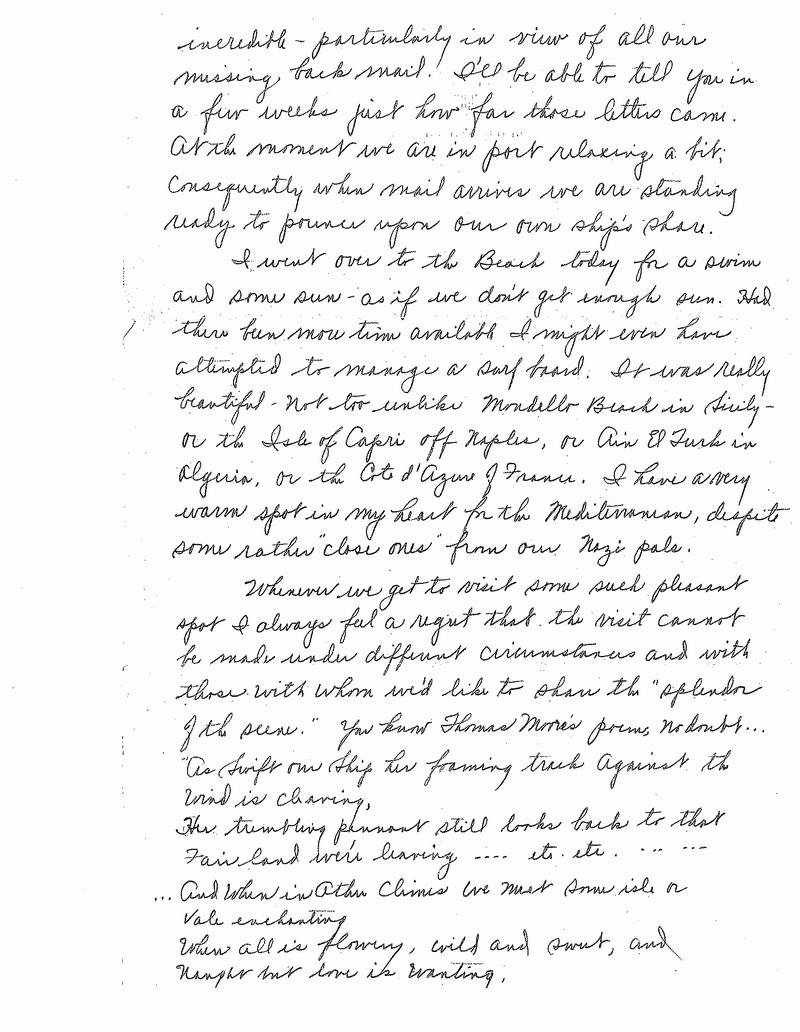 incredible - particularly in view of all our
missing back mail! I'll be able to tell you in
a few weeks just how far those letters came.
At the moment we are in port relaxing a bit;
Consequently when mail arrives we are standing
ready to pounce upon our own ship's share.
I went over to the Beach today for a swim
and some sun - as if we don't get enough sun. Had
there been more time available I might even have
attempted to manage a surf board. It was really
beautiful - Not too unlike Mondello Beach in Sicily -
or the Isle of Capri off Naples, or Ain El Turk in
Algeria, or the Cote d'Azure of France. I have a very
warm spot in my heart for the Mediterranean, despite
some rather "close ones" from our Nazi pals.
Whenever we get to visit some such pleasant
spot I always feel a regret that the visit cannot
be made under different circumstances and with
those with whom we'd like to share the "splendor
of the scene." You know Thomas Moore's poem, no doubt...
"As Swift our Ship her foaming track Against the
Wind is cleaving,
Her trembling pennant still looks back to that
Fair land we're leaving ---- etc. etc. --- ---
... And When in Other Climes We Meet Some isle or
Vale enchanting
When all is flowery, wild and sweet, and
Naught but love is Wanting,